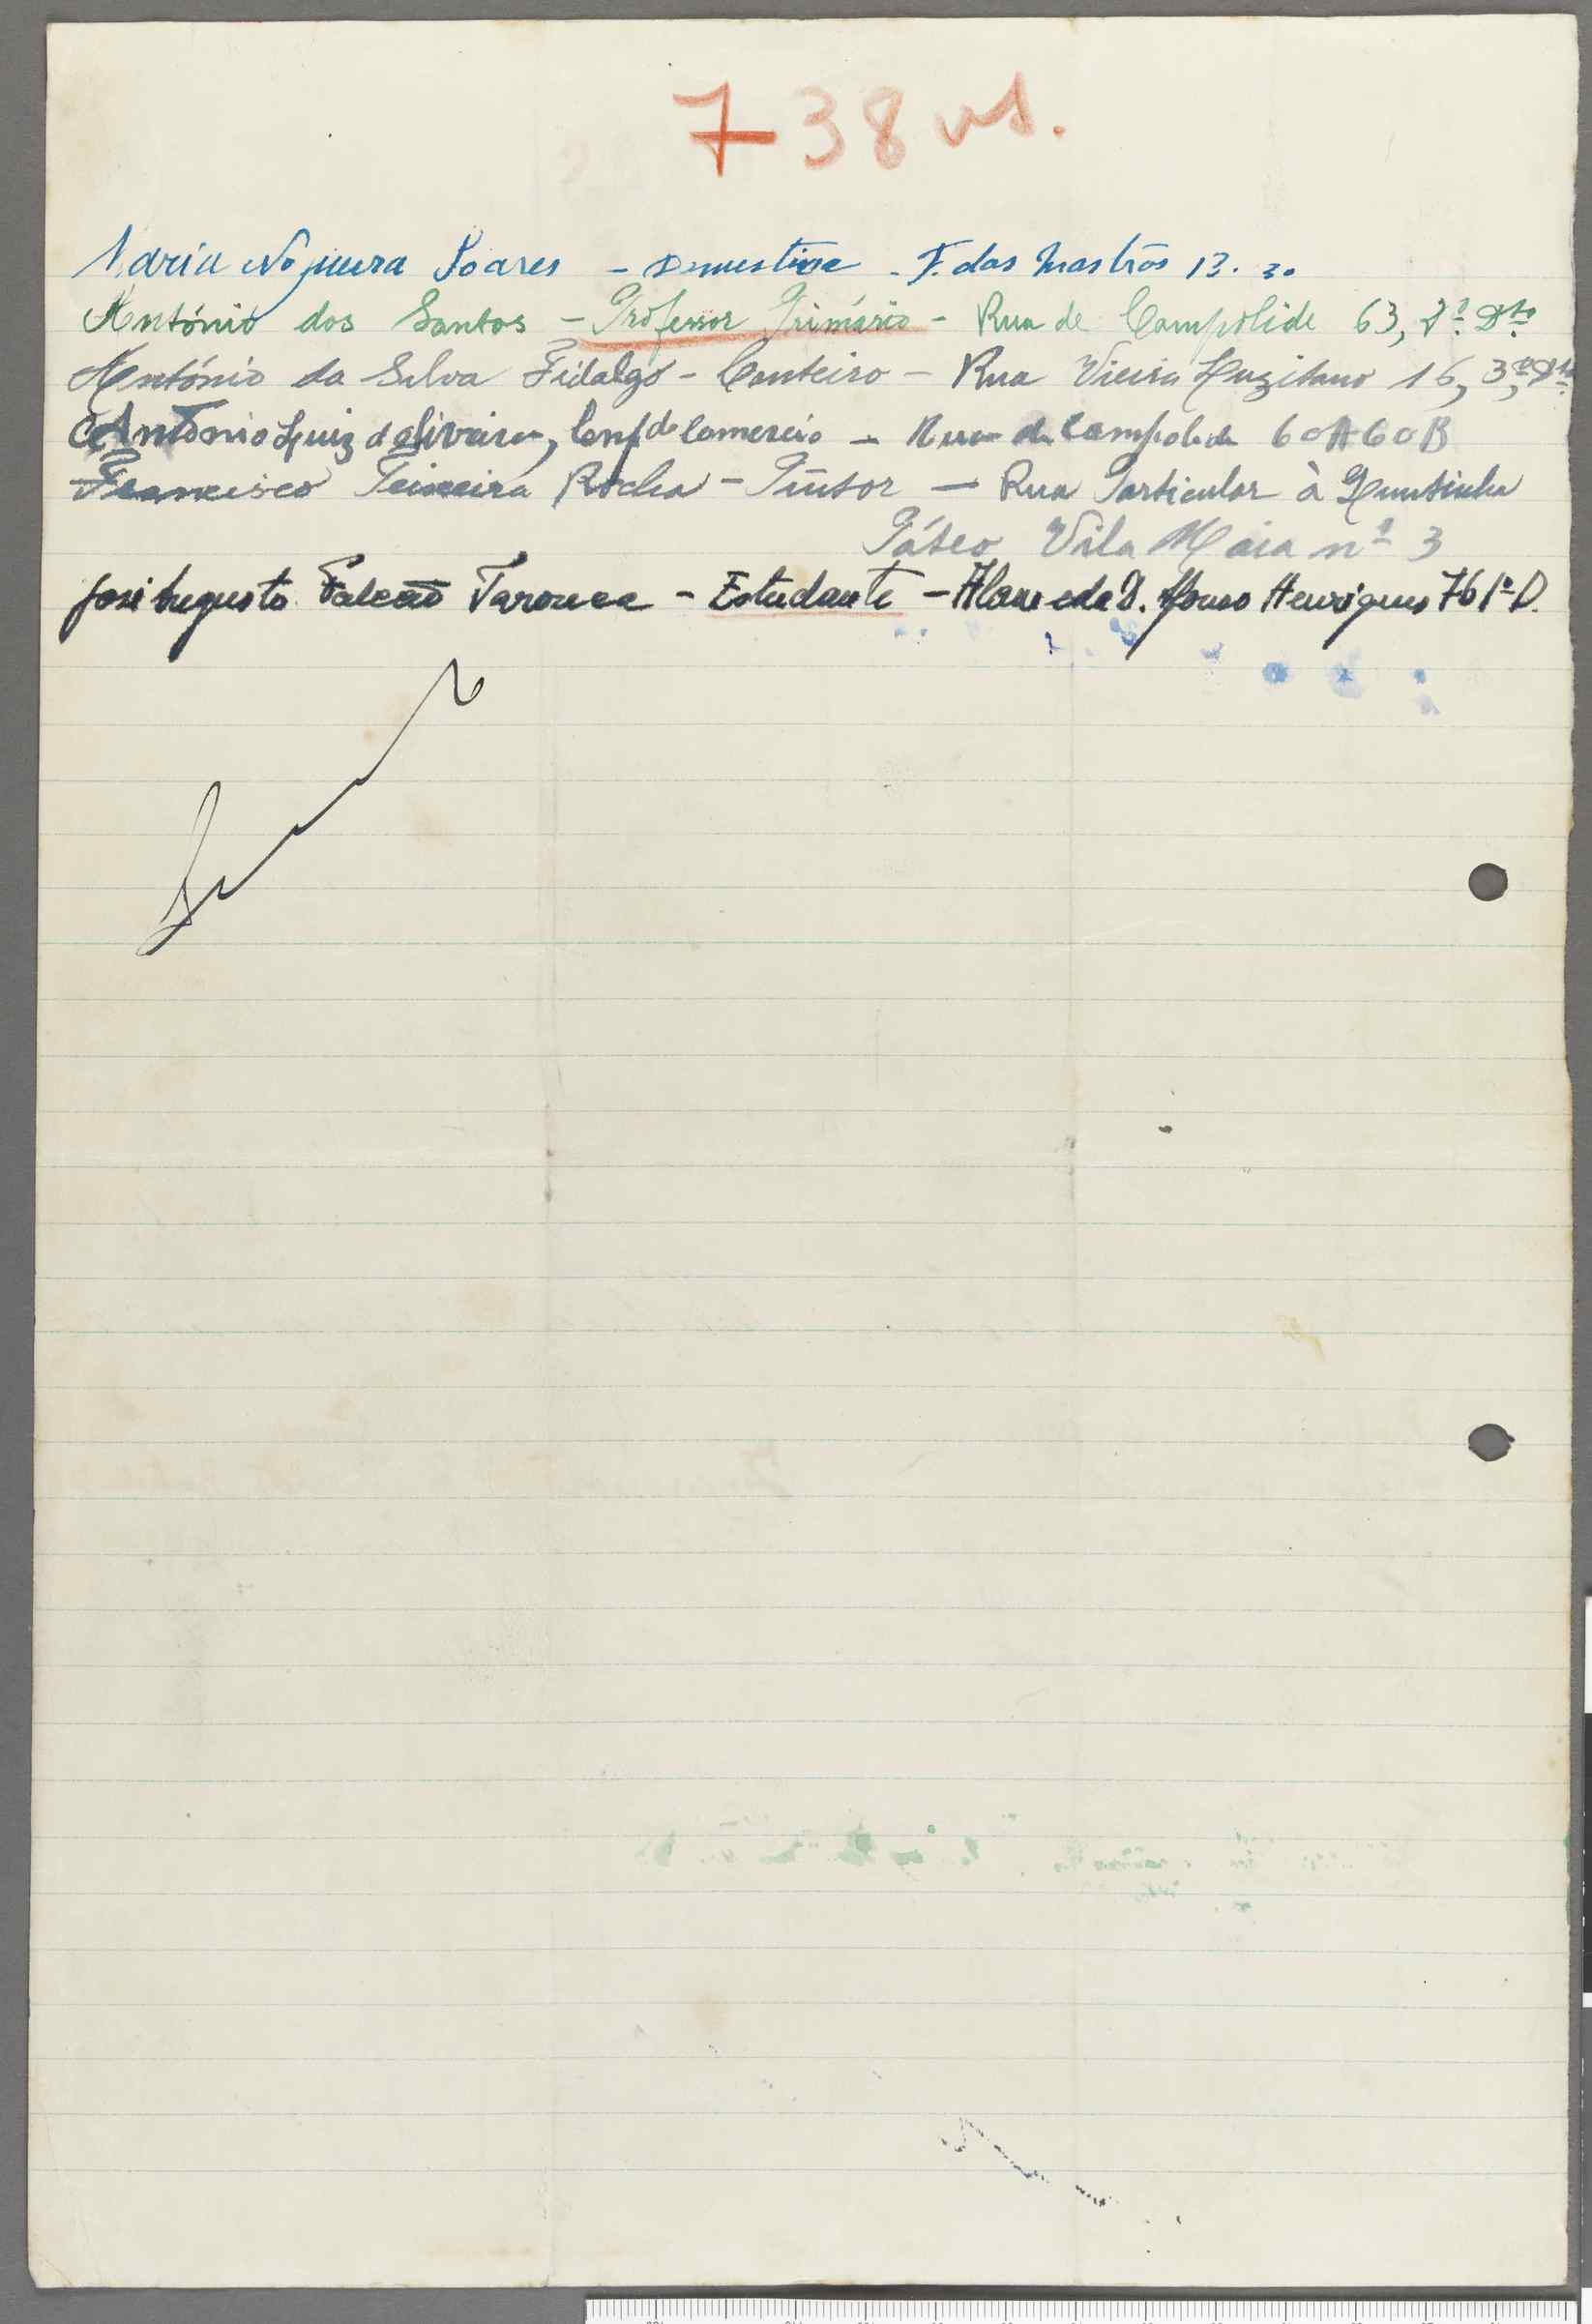 738 vs.
Maria Nogueira Soares - Domestica - T. das Mastros 13. 3o
António dos Santos - Professor Primário - Rua de Campolide 63, 2º Dto
António da Silva Fidalgo - Canteiro - Rua Vieira Luzitano 16, 3º, Dto
António Luiz d'Oliveira, Conf de Comercio - Rua de Campolide 60A60B
Francisco Teixeira Rocha - Pintor - Rua Particular à
Páteo Vila Maia nº 3
José Augusto Falcão Tarouca - Estudante - Alameda D. Afonso Henriques 76 1º D.